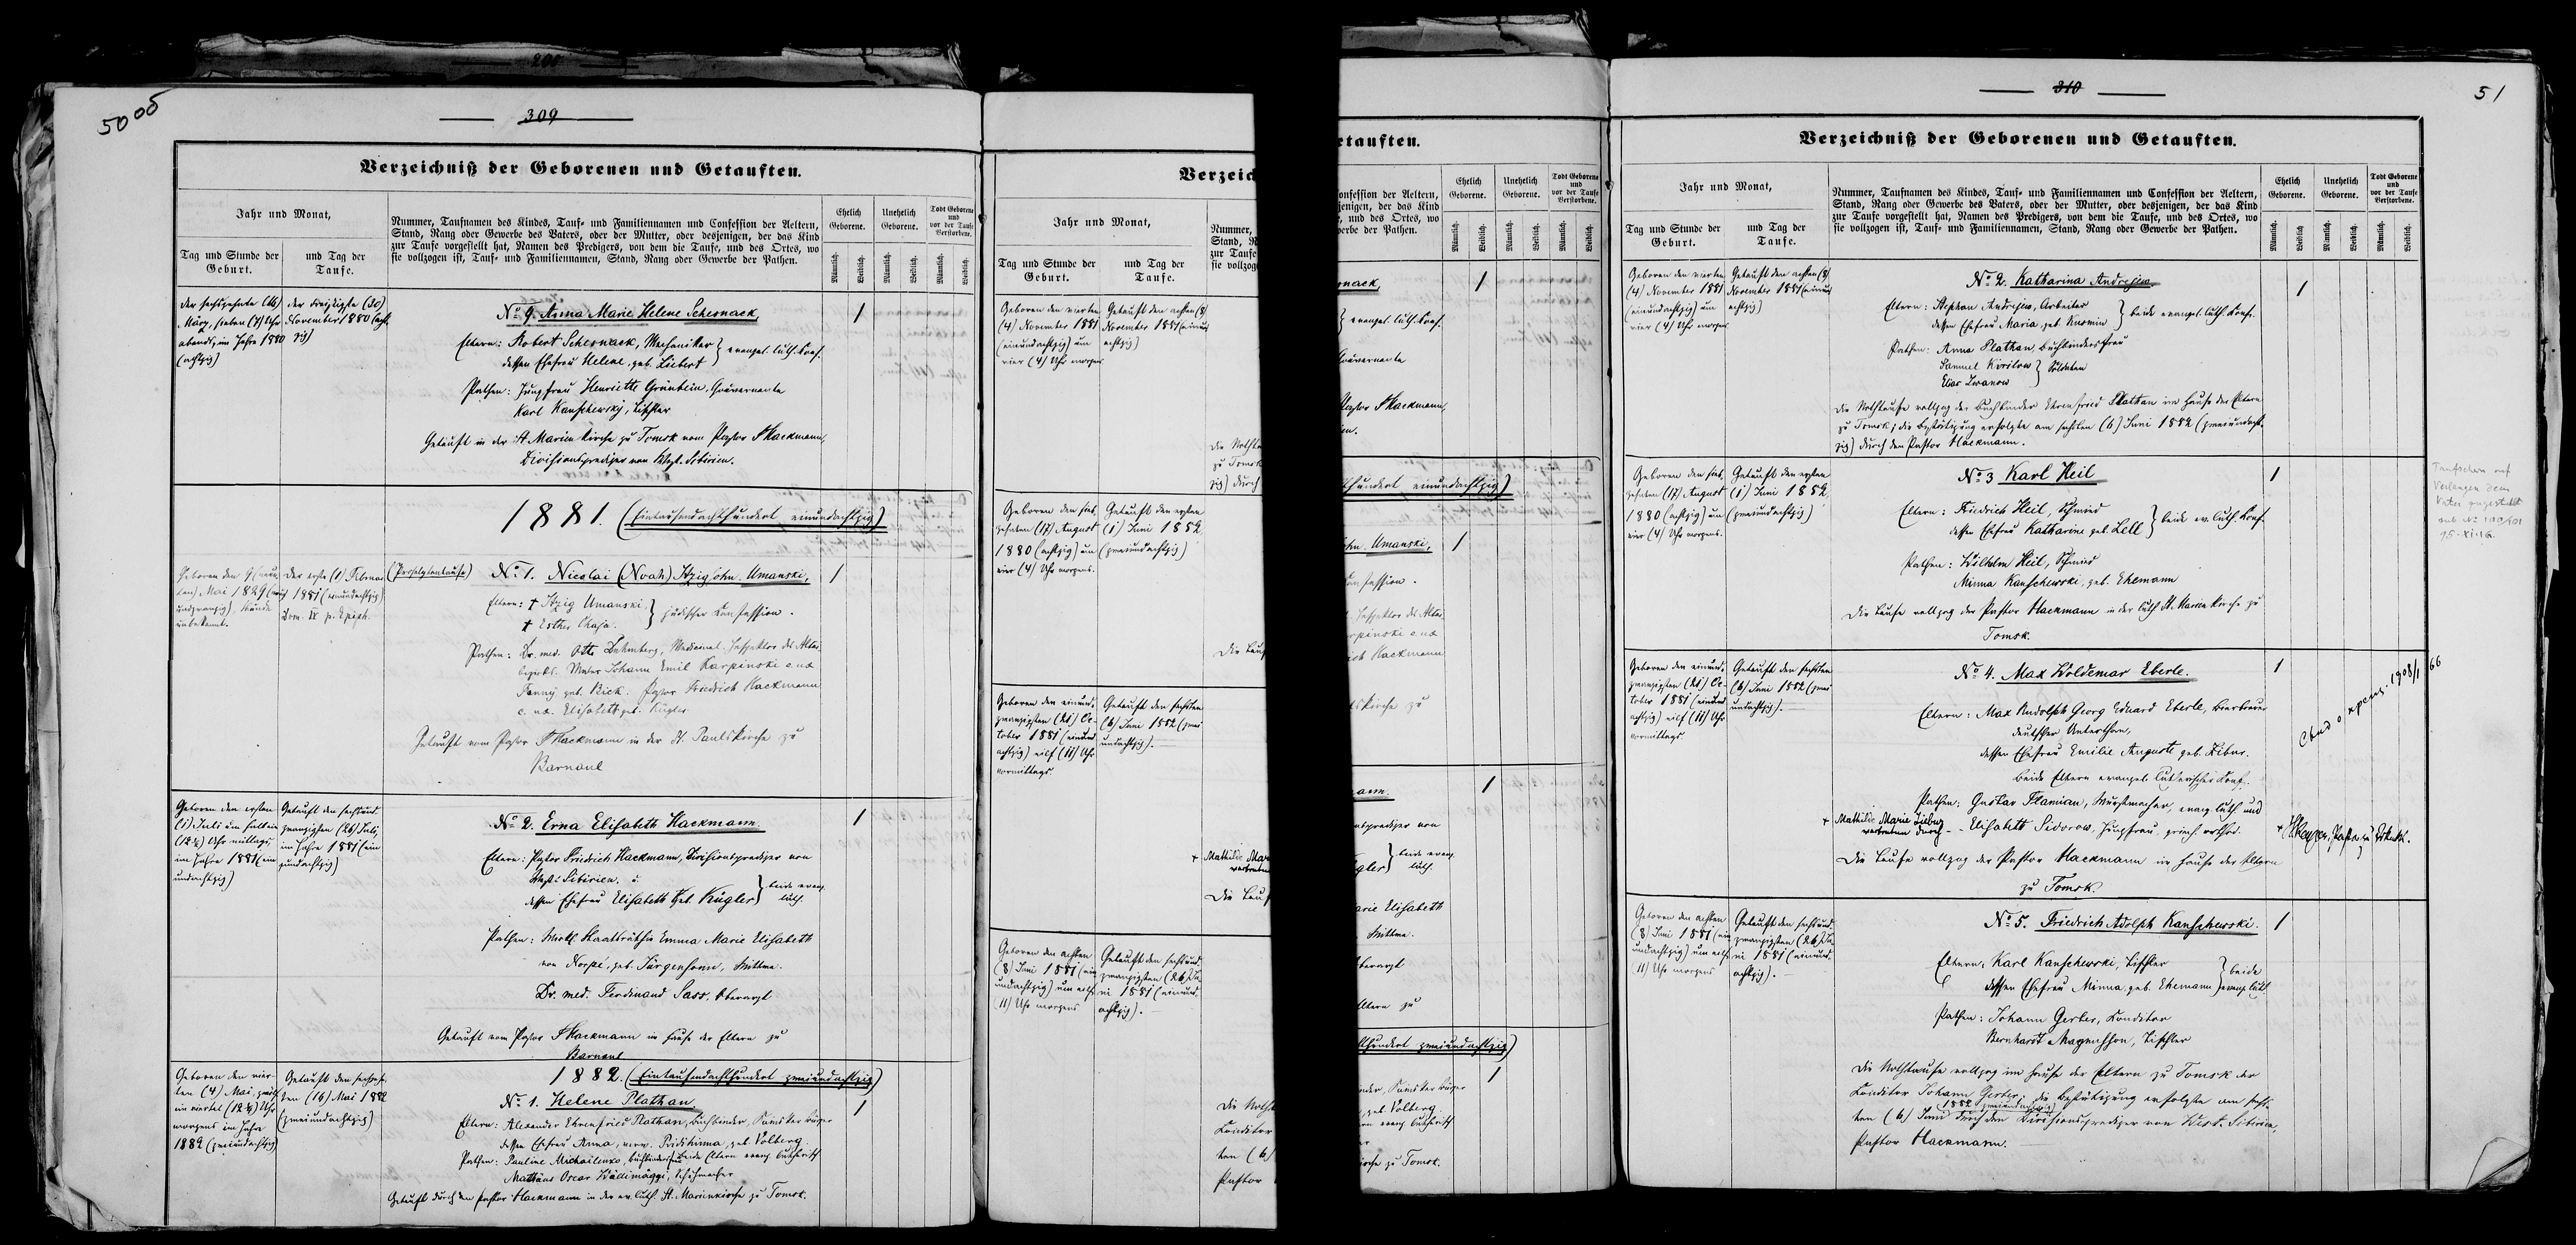 50 об
309
Verzeichniß der Geborenen und Getauften.
Jahr und Monat,
Tag und Stunde der Geburt.
und Tag der Taufe.
Nummer, Taufnamen des Kindes, Tauf- und Familiennamen und Confession der Aeltern,
Stand, Rang oder Gewerbe des Vaters, oder der Mutter, oder desjenigen, der das Kind
zur Taufe vorgestellt hat, Namen des Predigers, von dem die Taufe, und des Ortes, wo
sie vollzogen ist, Tauf- und Familiennamen, Stand, Rang oder Gewerbe der Pathen.
Ehelich Geborene.
Unehelich Geborene.
Todt Geborene und vor der Taufe Verstorbene.
Männlich. Weiblich. Männlich. Weiblich. Männlich. Weiblich.
der sechszehnte (16)
März, sieben (7) Uhr
abends, im Jahre 1880
(achtzig)
der dreizigste (30)
November 1880 (acht-
zig)
No 9. Anna Marie Helene Schesnack, 1
Eltern: Robert Schesnack, Mechaniker
dessen Ehefrau Helene, geb. Liebert } evangel. luth. Conf.
Pathen: Jungfrau Henriette Grünbein, Gouvernante
Karl Kanschewsky, Tischler
Getauft in der St. Marien Kirche zu Tomsk vom Pastor F Hackmann,
Divisionsprediger von West-Sibirien.
1881. (Eintausendachthundert einundachtzig)
Geboren den 9 (neun
ten) Mai 1829 (neun
undzwanzig), Stunde
unbekannt.
Der erste (1) Februar
1881 (einundachtzig)
Dom. IV p. Epiph.
(Proselytentaufe) No 1. Nicolai (Noah) Itzigsohn Umanski, 1
Eltern: † Itzig Umanski
† Esther Chaja. } jüdischer Confession.
Pathen: Dr. med. Otto Duhmberg, Medicinal-Inspektor des Altai
bezirks. Johann Emil Karpinski c. ux.
Fanny geb. Rick. Pastor Friedrich Hackmann
c. ux. Elisabeth geb. Kügler
Getauft vom Pastor F Hackmann in der St. Paulskirche zu
Barnaul
Geboren den ersten
(1) Juli um halb ein
(12½) Uhr mittags,
im Jahre 1881 (ein
undachtzig)
Getauft den sechsund-
zwanzigsten (26) Juli,
im Jahre 1881 (ein
undachtzig)
No 2. Erna Elisabeth Hackmann. 1
Eltern: Pastor Friedrich Hackmann, Divisionsprediger von
West-Sibirien. u.
dessen Ehefrau Elisabeth geb. Kügler } beide evang. luth.
Pathen: Wirkl. Staatsräthin Emma Marie Elisabeth
von Norpe, geb. Jürgensonn, Wittwe.
Dr. med. Ferdinand Sass, Oberarzt
Getauft vom Pastor F Hackmann im Hause der Eltern zu
Barnaul
1882. (Eintausendachthundert zweiundachtzig)
Geboren den vier-
ten (4) Mai, zwölf
ein viertel (12¼) Uhr
morgens im Jahre
1882 (zweiundachtzig)
Getauft den sechzehn-
ten (16) Mai 1882
(zweiundachtzig)
No 1. Helene Plathan 1
Eltern: Alexander Ehrenfried Plathan, Buchbinder, Tomsker Bürger
dessen Ehefrau Anna, verw. geb. Volberg.
Pathen: Pauline Michailenko, Beide Eltern evang. lutherisch
Mathäus Oscar Wällimäggi, Schuhmacher
Getauft durch den Pastor Hackmann in der ev. luth. St. Marienkirche zu Tomsk.
Verzeich
Jahr und Monat,
Tag und Stunde der Geburt.
und Tag der Taufe.
Nummer,
zur Taufe
sie vollzog
Geboren den vierten
(4) November 1881
(einundachtzig) um
vier (4) Uhr morgens
Getauft den achten (8)
November 1881 (einund
achtzig)
Geboren den sieb-
zehnten (17) August
1880 (achtzig) um
vier (4) Uhr morgens.
Getauft den ersten
(1) Juni 1882
(zweiundachtzig)
Geboren den einund-
zwanzigsten (21) Oc-
tober 1881 (einund
achtzig) eilf (11) Uhr
vormittags.
Getauft den sechsten
(6) Juni 1882 (zwei
undachtzig).
Geboren den achten
(8) Juni 1881 (ein
undachtzig) um eilf
(11) Uhr morgens
Getauft den sechsund-
zwanzigsten (26) Ju-
ni 1881 (einund-
achtzig).
310
51
Verzeichniß der Geborenen und Getauften.
Jahr und Monat,
Tag und Stunde der Geburt.
und Tag der Taufe.
Nummer, Taufnamen des Kindes, Tauf- und Familiennamen und Confession der Aeltern,
Stand, Rang oder Gewerbe des Vaters, oder der Mutter, oder desjenigen, der das Kind
zur Taufe vorgestellt hat, Namen des Predigers, von dem die Taufe, und des Ortes, wo
sie vollzogen ist, Tauf- und Familiennamen, Stand, Rang oder Gewerbe der Pathen.
Ehelich Geborene.
Unehelich Geborene.
Todt Geborene und vor der Taufe Verstorbene.
Männlich. Weiblich. Männlich. Weiblich. Männlich. Weiblich.
Geboren den vierten
(4) November 1881
(einundachtzig) um
vier (4) Uhr morgens
Getauft den achten (8)
November 1881 (einund
achtzig)
No 2. Katharina Andrejew 1
Eltern: Stephan Andrejew, Arbeiter
dessen Ehefrau Maria, geb. Kusmin } beide evangel. luth. Conf.
Pathen: Anna Plathan, Buchbindersfrau
Samuel Kirilow
Elias Iwanow } Soldaten
Die Nothtaufe vollzog der Buchbinder Ehrenfried Plathan im Hause der Eltern
zu Tomsk; die Bestätigung erfolgte am sechsten (6) Juni 1882 (zweiundacht-
zig) durch den Pastor Hackmann.
Geboren den sieb-
zehnten (17) August
1880 (achtzig) um
vier (4) Uhr morgens.
Getauft den ersten
(1) Juni 1882
(zweiundachtzig)
No 3 Karl Heil 1
Eltern: Friedrich Heil, Schmied
dessen Ehefrau Katharine geb. Lell } beide ev. luth. Conf.
Pathen: Wilhelm Heil, Schmied
Minna Kanschewski, geb. Ehemann
Die Taufe vollzog der Pastor Hackmann in der luth. St. Marien Kirche zu
Tomsk.
Taufschein auf
Verlangen dem
Vater
15-XI-16.
Geboren den einund-
zwanzigsten (21) Oc-
tober 1881 (einund
achtzig) eilf (11) Uhr
vormittags.
Getauft den sechsten
(6) Juni 1882 (zwei
undachtzig).
No 4. Max Woldemar Eberle. 1
Eltern: Max Rudolph Georg Eduard Eberle, Bierbrauer
deutscher Unterthan,
dessen Ehefrau Emilie Auguste geb. Zibur.
Beide Eltern evangel. lutherischer Conf.
Pathen: Gustav Flamian, Wurstmacher, evang. luth. und
+ Mathilde Marie
vertreten durch - Elisabeth Sidorow, Jungfrau, griech. orthod.
Die Taufe vollzog der Pastor Hackmann im Hause der Eltern
zu Tomsk.
1908/1 66
Geboren den achten
(8) Juni 1881 (ein
undachtzig) um eilf
(11) Uhr morgens
Getauft den sechsund-
zwanzigsten (26) Ju-
ni 1881 (einund-
achtzig).
No 5. Friedrich Adolph Kanschewski. 1
Eltern: Karl Kanschewski, Tischler
dessen Ehefrau Minna, geb. Ehemann } beide evang. luth.
Pathen: Johann Gerber, Conditor
Bernhardt Magnusson, Tischler
Die Nothtaufe vollzog im Hause der Eltern zu Tomsk der
Conditor Johann Gerber; die Bestätigung erfolgte am sechs-
ten (6) Juni 1882 (zweiundachtzig) durch den Divisionsprediger von West-Sibirien,
Pastor Hackmann.